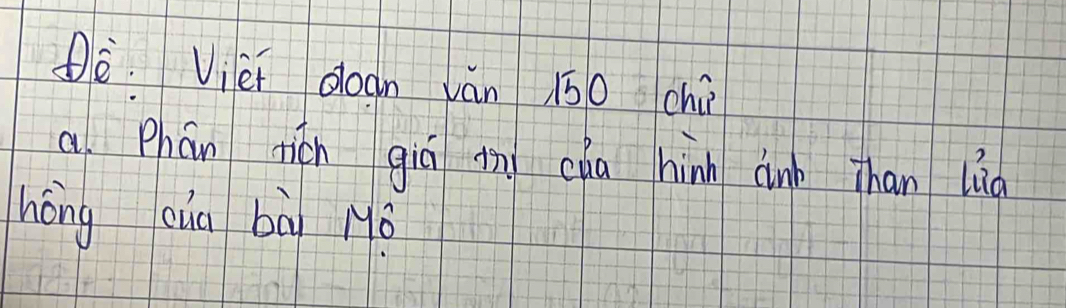 Đề: Viết đoạn văn 150 chữ
a. Phân tích giá trị của hình ảnh than lửa
hồng của bài Mộ